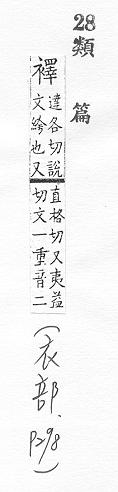 28
類篇
襗
達各切說
文絝也又
直格切又夷益
切文一重音二
(衣部, P298)